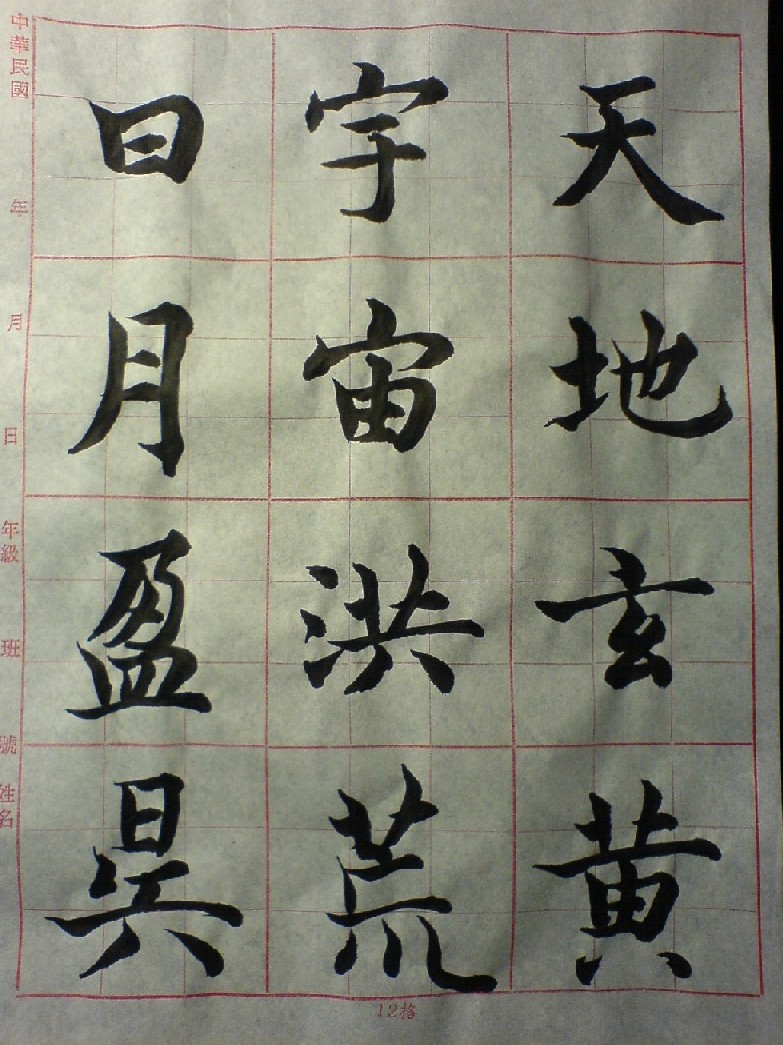 天地玄黄
宇宙洪荒
日月盈昃
中華民國 年 月 日 年級 班 號 姓名
12格